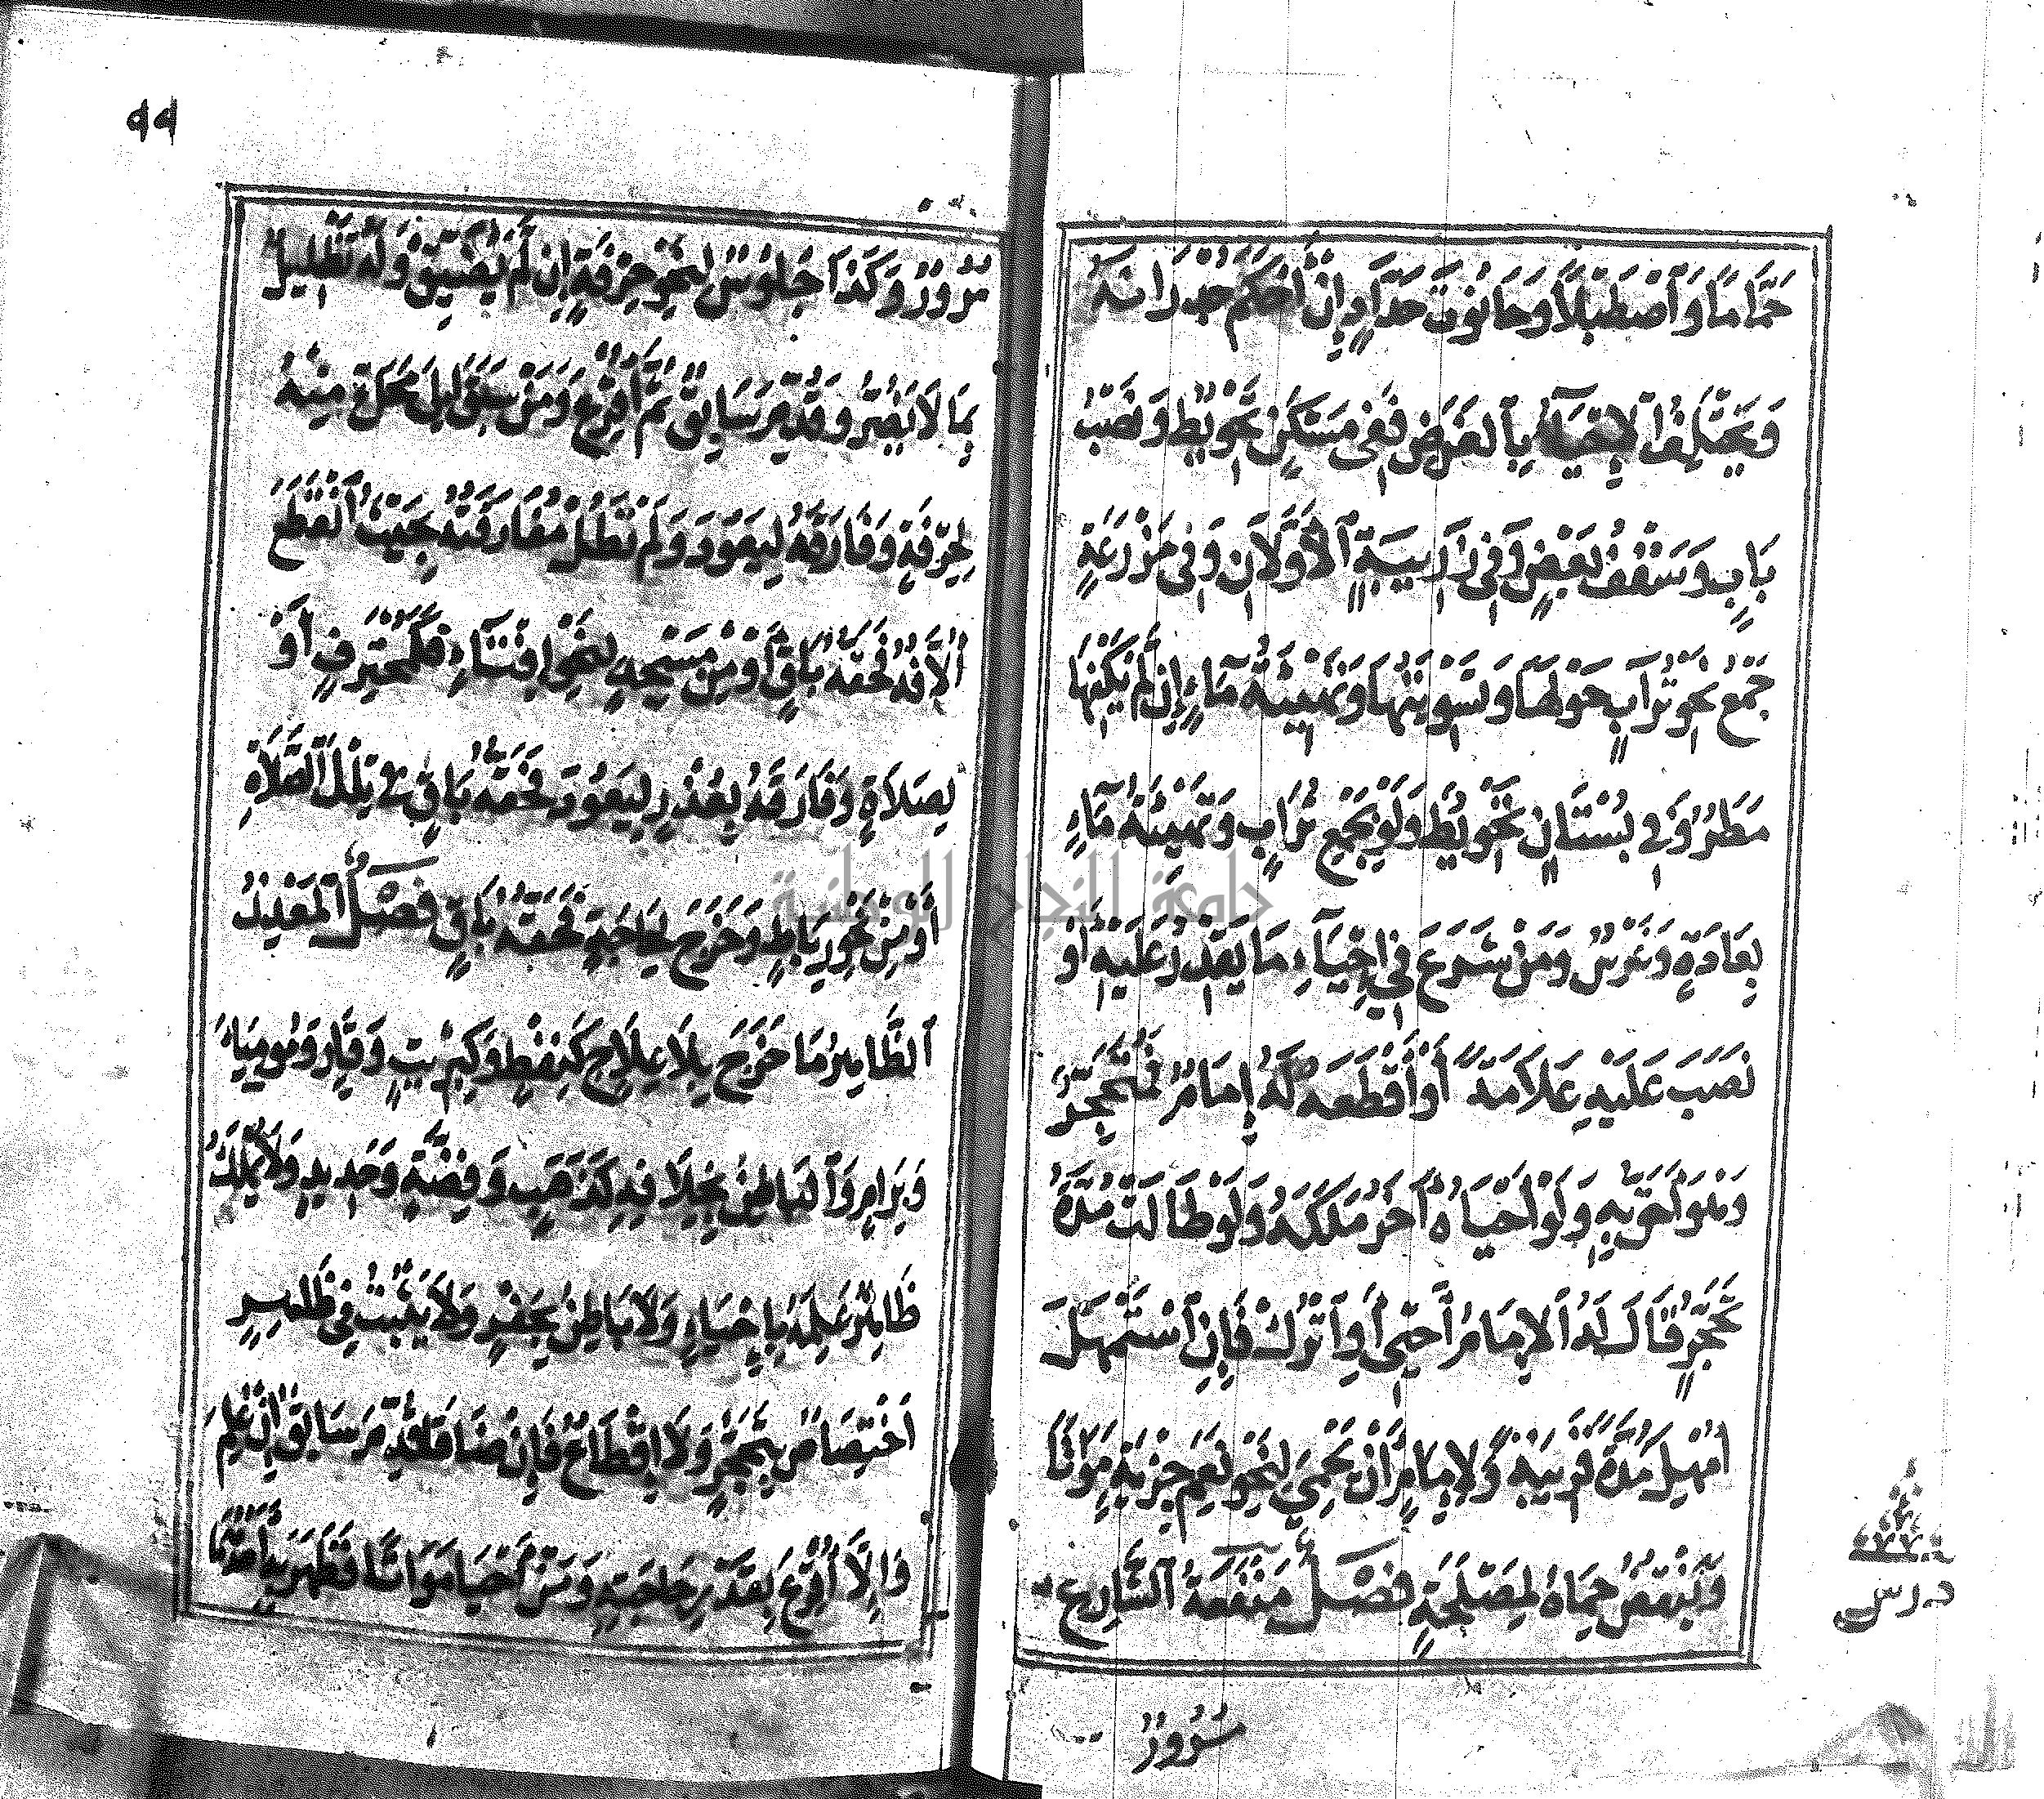 حَمَّامًا وَأَصْطَبْلًا وَحَانُوتَ حَدَّادٍ إِنْ أَحْكَمَ جُدْرَانَهُ
وَيَخْتَلِفُ ٱلْإِحْيَآءُ بِٱلْغَرَضِ فَفِى مَسْكَنٍ تَحْوِيطٌ وَنَصْبُ
بَابٍ وَسَقْفُ بَعْضٍ وَفِى زَرِيبَةٍ ٱلْأَوَّلَانِ وَفِى مَزْرَعَةٍ
جَمْعُ نَحْوِ تُرَابٍ حَوْلَهَا وَتَسْوِيَتُهَا وَتَهْيِئَةُ مَآءٍ إِنْ لَمْ يَكْفِهَا
مَطَرٌ وَفِى بُسْتَانٍ تَحْوِيطٌ وَلَوْ بِجَمْعِ تُرَابٍ وَتَهْيِئَةُ مَآءٍ
بِعَادَةٍ وَغَرْسٌ وَمَنْ شَرَعَ فِى إِحْيَآءِ مَا يَقْدِرُ عَلَيْهِ أَوْ
نَصَبَ عَلَيْهِ عَلَامَةً أَوْ أَقْطَعَهُ لَهُ إِمَامٌ فَمُتَحَجِّرٌ
وَهُوَ أَحَقُّ بِهِ وَلَوْ أَحْيَاهُ آخَرُ مَلَكَهُ وَلَوْ طَالَتْ مُدَّةُ
تَحَجُّرٍ قَالَ لَهُ ٱلْإِمَامُ أَحْىِ أَوِ ٱتْرُكْ فَإِنِ ٱسْتَمْهَلَ
أُمْهِلَ مُدَّةً قَرِيبَةً وَلِإِمَامٍ أَنْ يَحْمِىَ لِنَحْوِ نَعَمِ جِزْيَةٍ مَوَاتًا
وَيَنْقُضُ حِمَاهُ لِمَصْلَحَةٍ فَصْلٌ مَنْفَعَةُ ٱلشَّارِعِ
درس
مُرُورٌ
٩٩
مُرُورٌ وَكَذَا جُلُوسٌ لِنَحْوِ حِرْفَةٍ إِنْ لَمْ يُضَيِّقْ وَلَهُ تَظْلِيلٌ
بِمَا لَا يَضُرُّ وَقُدِّمَ سَابِقٌ ثُمَّ أُقْرِعَ وَمَنْ سَبَقَ إِلَى مَحَلٍّ مِنْهُ
لِحِرْفَةٍ وَفَارَقَهُ لِيَعُودَ وَلَمْ تَطُلْ مُفَارَقَتُهُ بِحَيْثُ ٱنْقَطَعَ
أُلَّافُهُ فَحَقُّهُ بَاقٍ أَوْ مِنْ مَسْجِدٍ لِنَحْوِ إِفْتَاءٍ فَكَمُحْتَرِفٍ أَوْ
لِصَلَاةٍ وَفَارَقَهُ بِعُذْرٍ لِيَعُودَ فَحَقُّهُ بَاقٍ فِى تِلْكَ ٱلصَّلَاةِ
أَوْ مِنْ نَحْوِ رِبَاطٍ وَخَرَجَ لِحَاجَةٍ فَحَقُّهُ بَاقٍ فَصْلٌ ٱلْمَعْدِنُ
ٱلظَّاهِرُ مَا خَرَجَ بِلَا عِلَاجٍ كَنِفْطٍ وَكِبْرِيتٍ وَقَارٍ وَمُومِيَاءَ
وَبِرَامٍ وَٱلْبَاطِنُ بِخِلَافِهِ كَذَهَبٍ وَفِضَّةٍ وَحَدِيدٍ وَلَا يُمْلَكُ
ظَاهِرٌ عَلِمَهُ بِإِحْيَاءٍ وَلَا بَاطِنٌ بِحَفْرٍ وَلَا يَثْبُتُ فِى ظَاهِرٍ
ٱخْتِصَاصٌ بِتَحَجُّرٍ وَلَا إِقْطَاعٌ فَإِنْ ضَاقَا قُدِّمَ سَابِقٌ إِنْ عُلِمَ
وَإِلَّا أُقْرِعَ بِقَدْرِ حَاجَتِهِ وَمَنْ أَحْيَا مَوَاتًا فَظَهَرَ بِهِ أَحَدُهُمَا